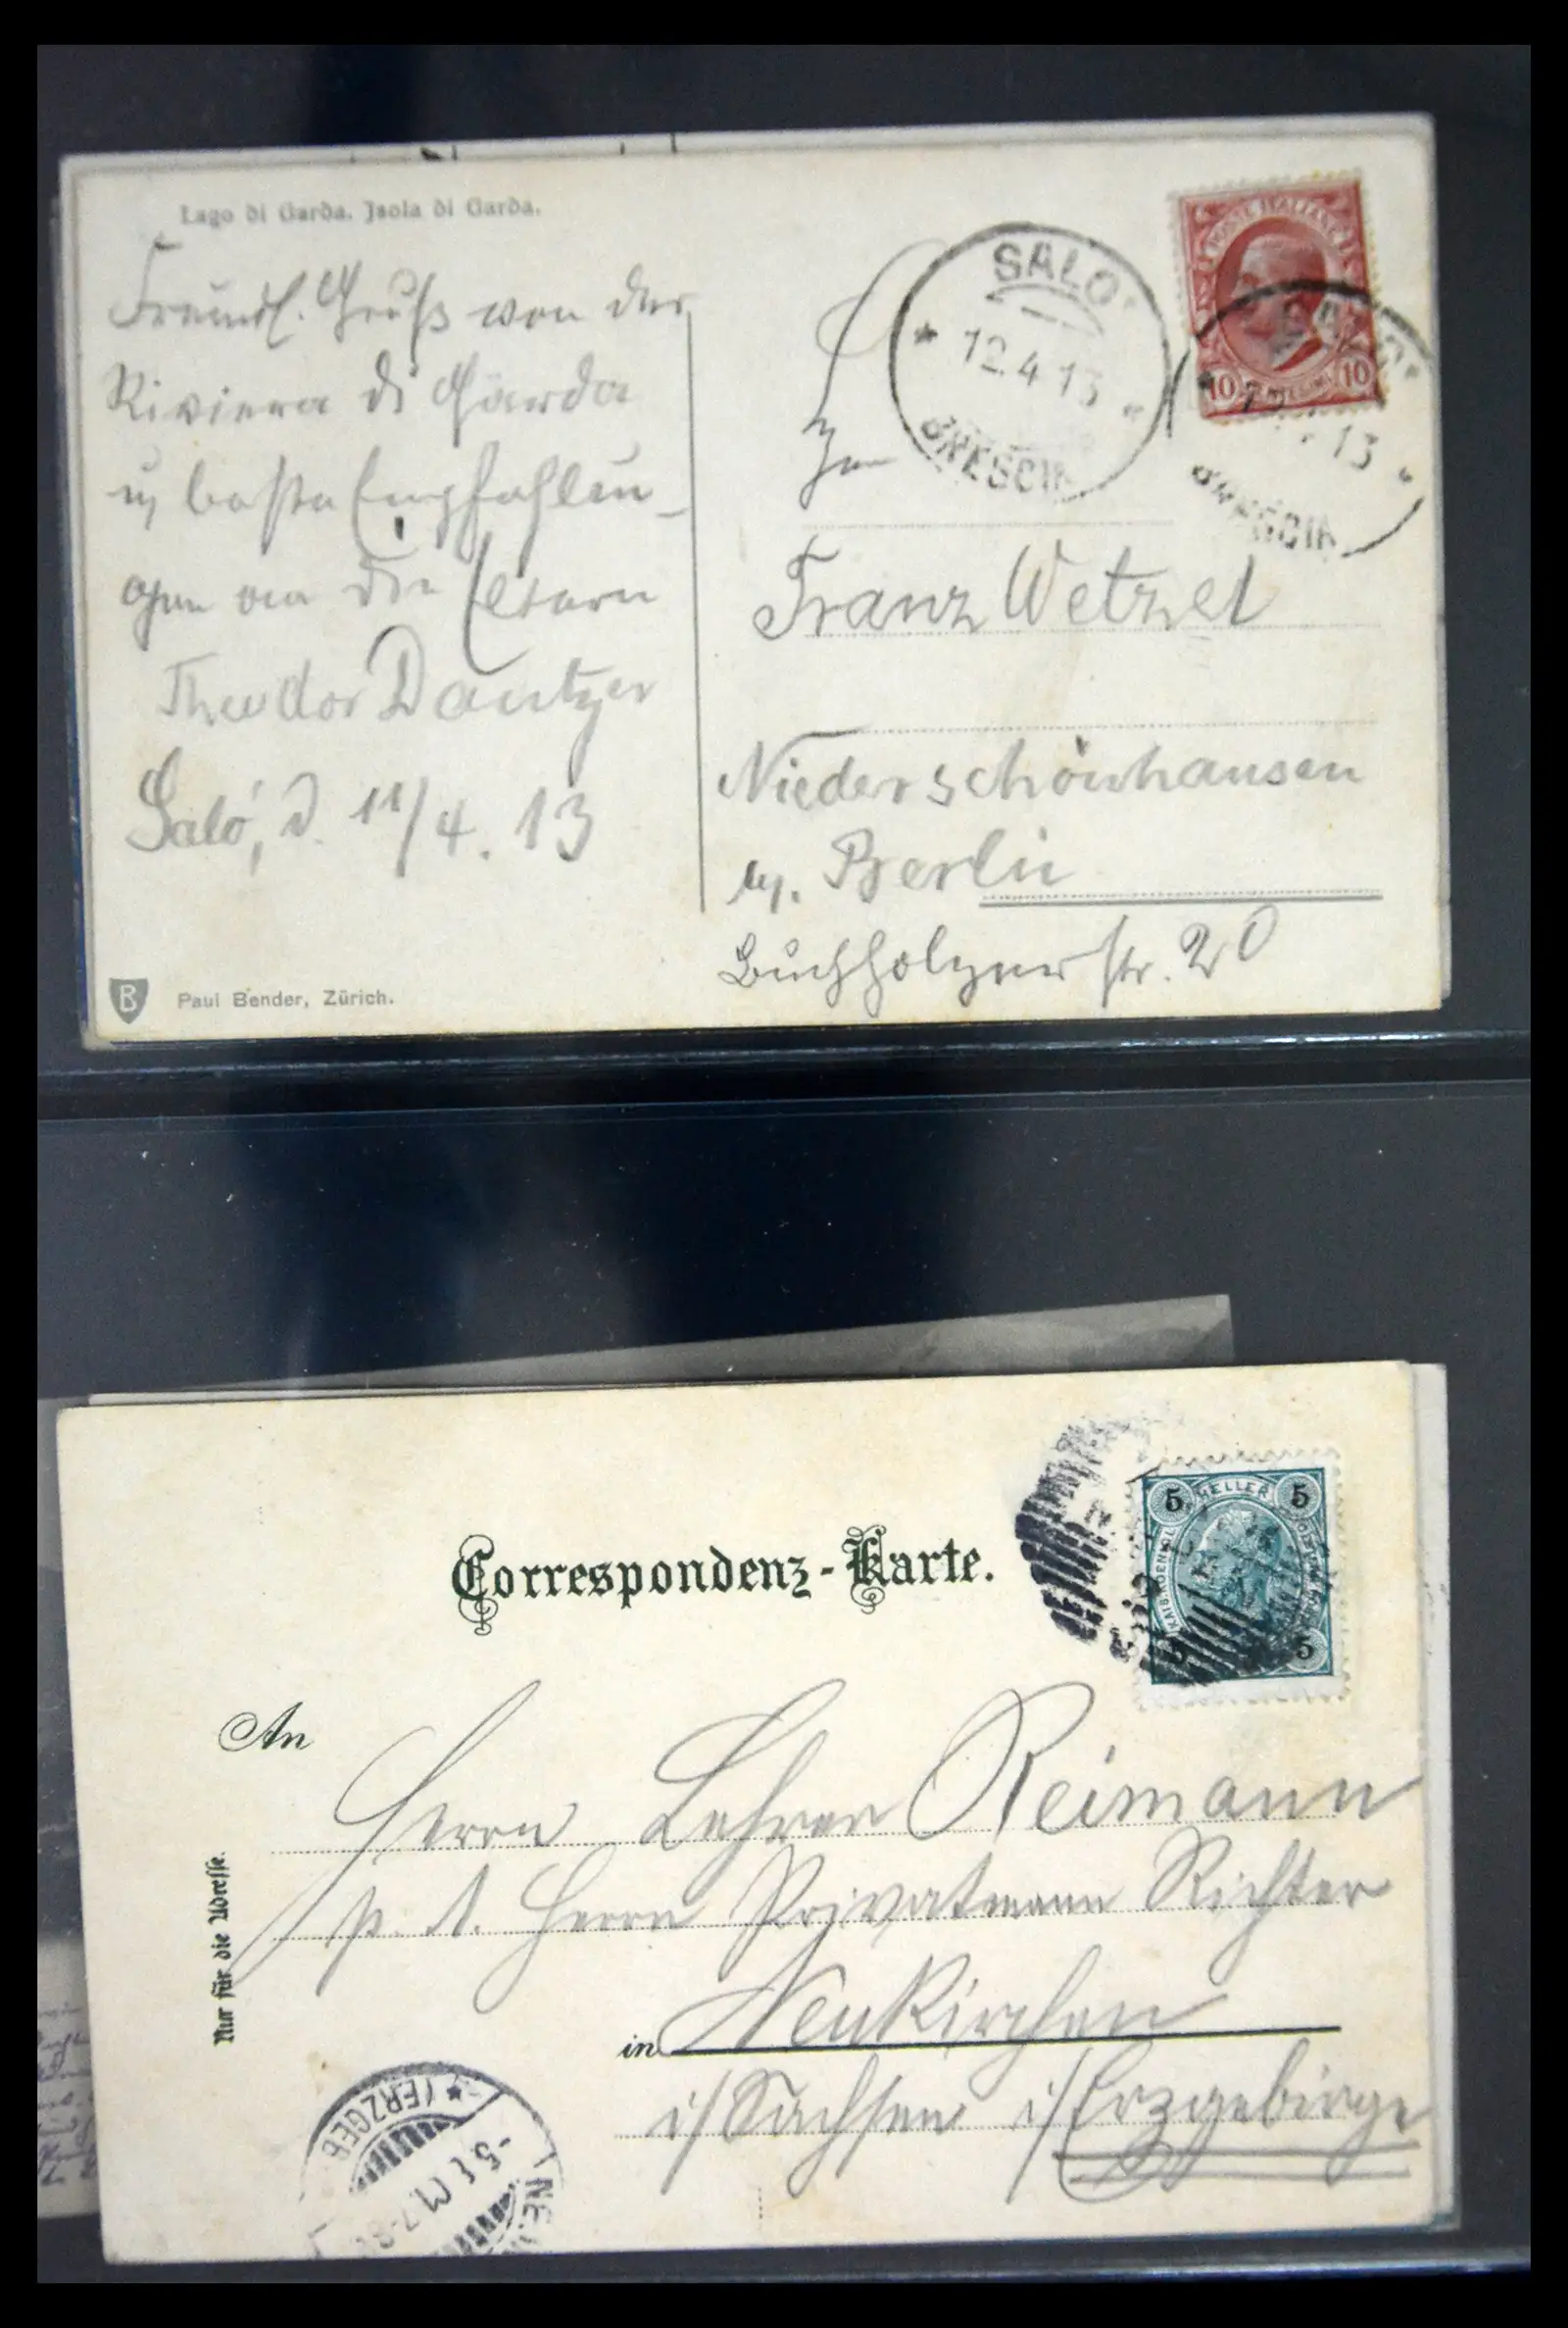 Lago di Garda. Isola di Garda.
Freundl. Gruß von der
Riviera di Garda
u, beste Empfehlun-
gen an die Eltern
Theodor Dantzer
Saló, d. 11/4. 13
B Paul Bender, Zürich.
SALO
12.4.13
BRESCIA
POSTE ITALIANE
10 10
SALO
13
BRESCIA
Franz Wetzel
Niederschönhausen
b/. Berlin
Buchholzerstr. 20
Correspondenz-Karte.
5 HELLER 5
5 5
An
Herrn Lehrer Reimann
p. A. Herrn Privatmann Richter
in Neukirchen
i/Sachsen i/Erzgebirge
Nur für die Adresse.
(ERZGEB